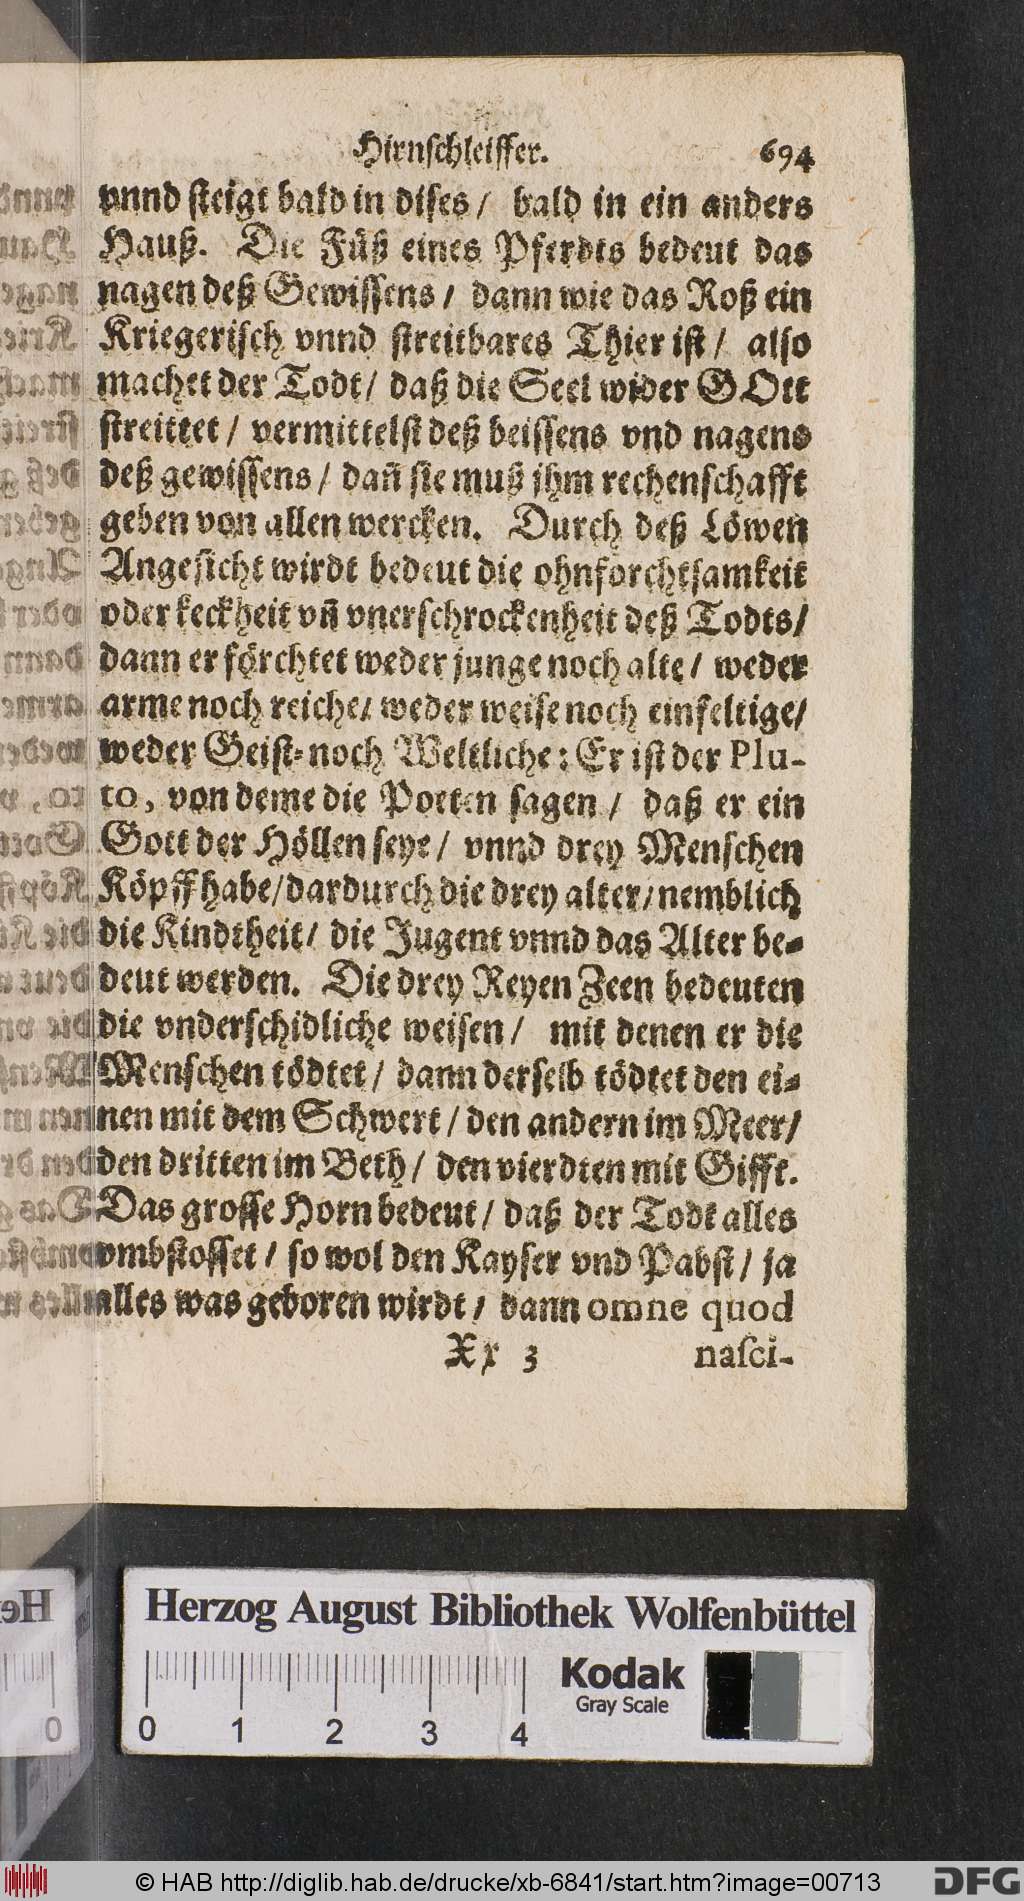 Hirnschleiffer. 694
vnnd steigt bald in dises / bald in ein anders
Hauß. Die Füß eines Pferdts bedeut das
nagen deß Gewissens / dann wie das Roß ein
Kriegerisch vnnd streitbares Thier ist / also
machet der Todt / daß die Seel wider GOtt
streittet / vermittelst deß beissens vnd nagens
deß gewissens / dañ sie muß jhm rechenschafft
geben von allen wercken. Durch deß Löwen
Angesicht wirdt bedeut die ohnforchtsamkeit
oder keckheit vñ vnerschrockenheit deß Todts /
dann er förchtet weder junge noch alte / weder
arme noch reiche / weder weise noch einfeltige /
weder Geist- noch Weltliche: Er ist der Plu-
to, von deme die Poeten sagen / daß er ein
Gott der Höllen seye / vnnd drey Menschen
Köpff habe / dardurch die drey alter / nemblich
die Kindtheit / die Jugent vnnd das Alter be-
deut werden. Die drey Reyen Zeen bedeuten
die vnderschidliche weisen / mit denen er die
Menschen tödtet / dann derselb tödtet den ei-
nen mit dem Schwert / den andern im Meer /
den dritten im Beth / den vierdten mit Gifft.
Das grosse Horn bedeut / daß der Todt alles
vmbstosset / so wol den Kayser vnd Pabst / ja
alles was geboren wirdt / dann omne quod
Xx 3 nasci-
Herzog August Bibliothek Wolfenbüttel
Kodak
Gray Scale
0 1 2 3 4
0
© HAB http://diglib.hab.de/drucke/xb-6841/start.htm?image=00713
DFG